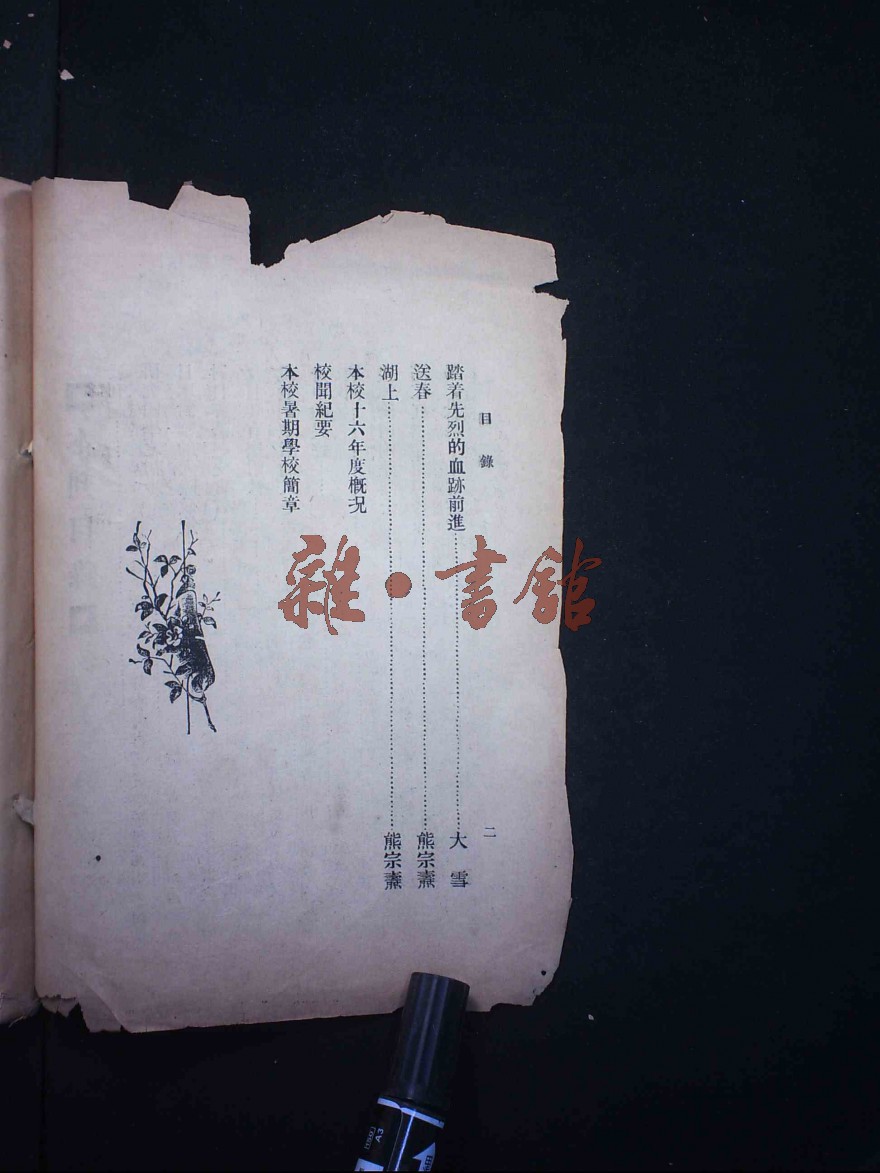 目錄
二
踏着先烈的血跡前進……大雪
送春……熊宗燾
湖上……熊宗燾
本校十六年度概况
校聞紀要
本校暑期學校簡章
雜·書館